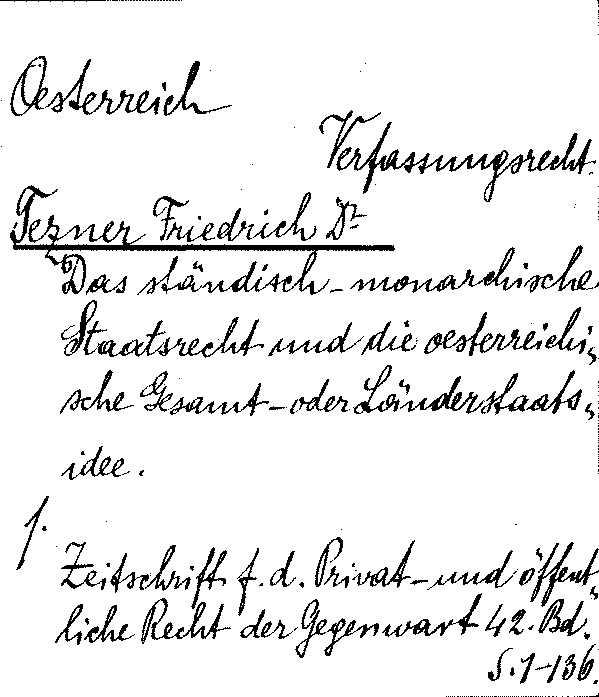 Oesterreich
Verfassungsrecht.
Tezner Friedrich Dr
Das ständisch-monarchische
Staatsrecht und die oesterreichi„
sche Gesamt-oder Länderstaats„
idee.
f.
Zeitschrift f. d. Privat-und öffent„
liche Recht der Gegenwart 42. Bd.
S. 1-136.